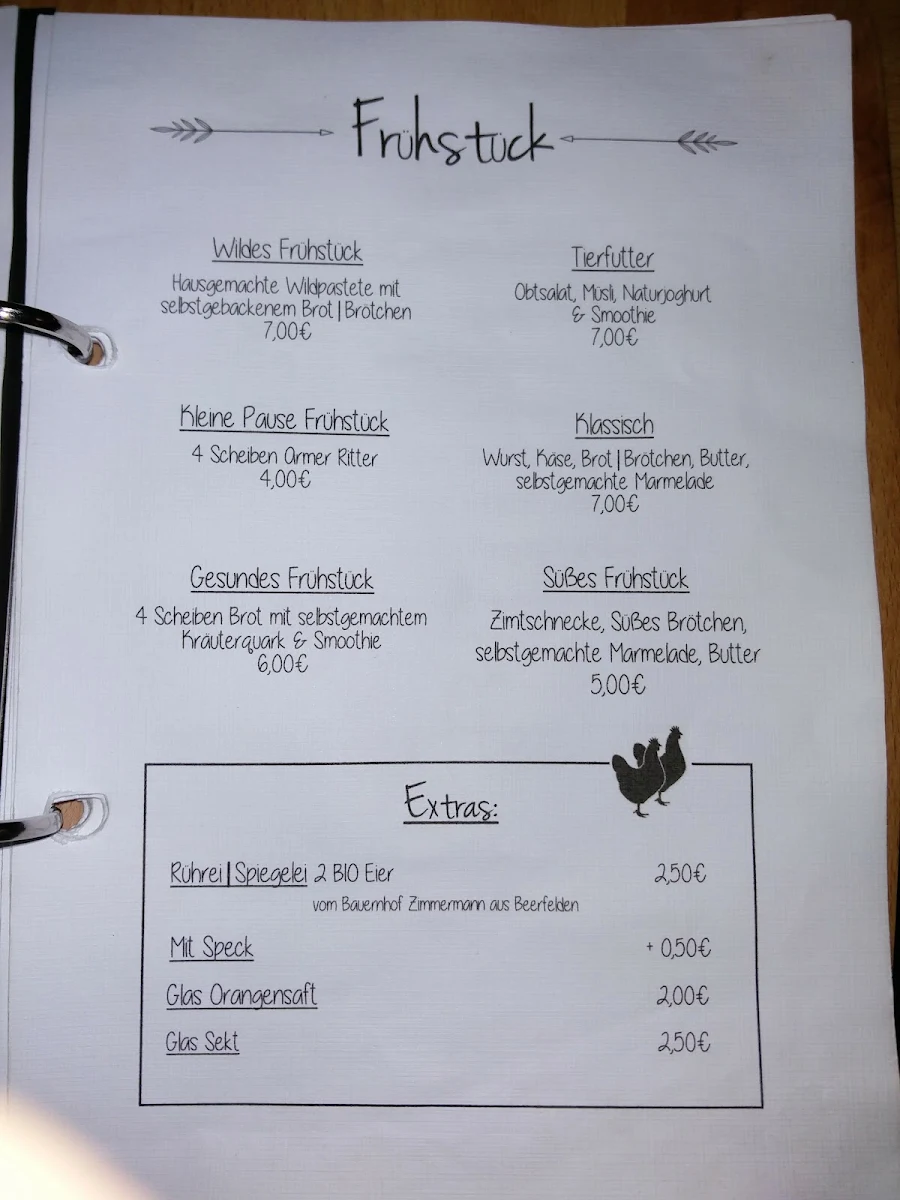 Frühstück
Wildes Frühstück
Hausgemachte Wildpastete mit
selbstgebackenem Brot | Brötchen
7,00€
Tierfutter
Obtsalat, Müsli, Naturjoghurt
& Smoothie
7,00€
Kleine Pause Frühstück
4 Scheiben Armer Ritter
4,00€
Klassisch
Wurst, Käse, Brot | Brötchen, Butter,
selbstgemachte Marmelade
7,00€
Gesundes Frühstück
4 Scheiben Brot mit selbstgemachtem
Kräuterquark & Smoothie
6,00€
Süßes Frühstück
Zimtschnecke, Süßes Brötchen,
selbstgemachte Marmelade, Butter
5,00€
Extras:
Rührei | Spiegelei 2 BIO Eier 2,50€
vom Bauernhof Zimmermann aus Beerfelden
Mit Speck + 0,50€
Glas Orangensaft 2,00€
Glas Sekt 2,50€